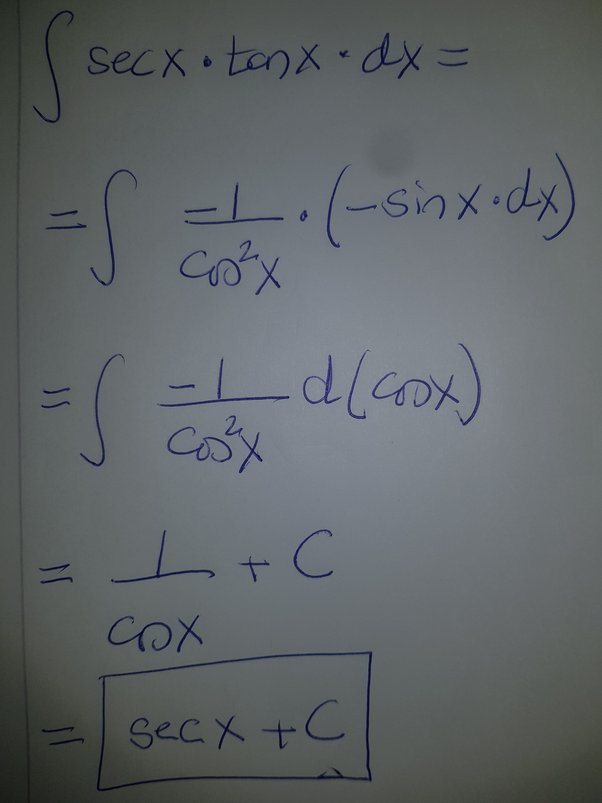 ∫ secx · tanx · dx =
= ∫ -1/cos²x · (-sinx·dx)
= ∫ -1/cos²x d(cosx)
= 1/cosx + C
= secx + C